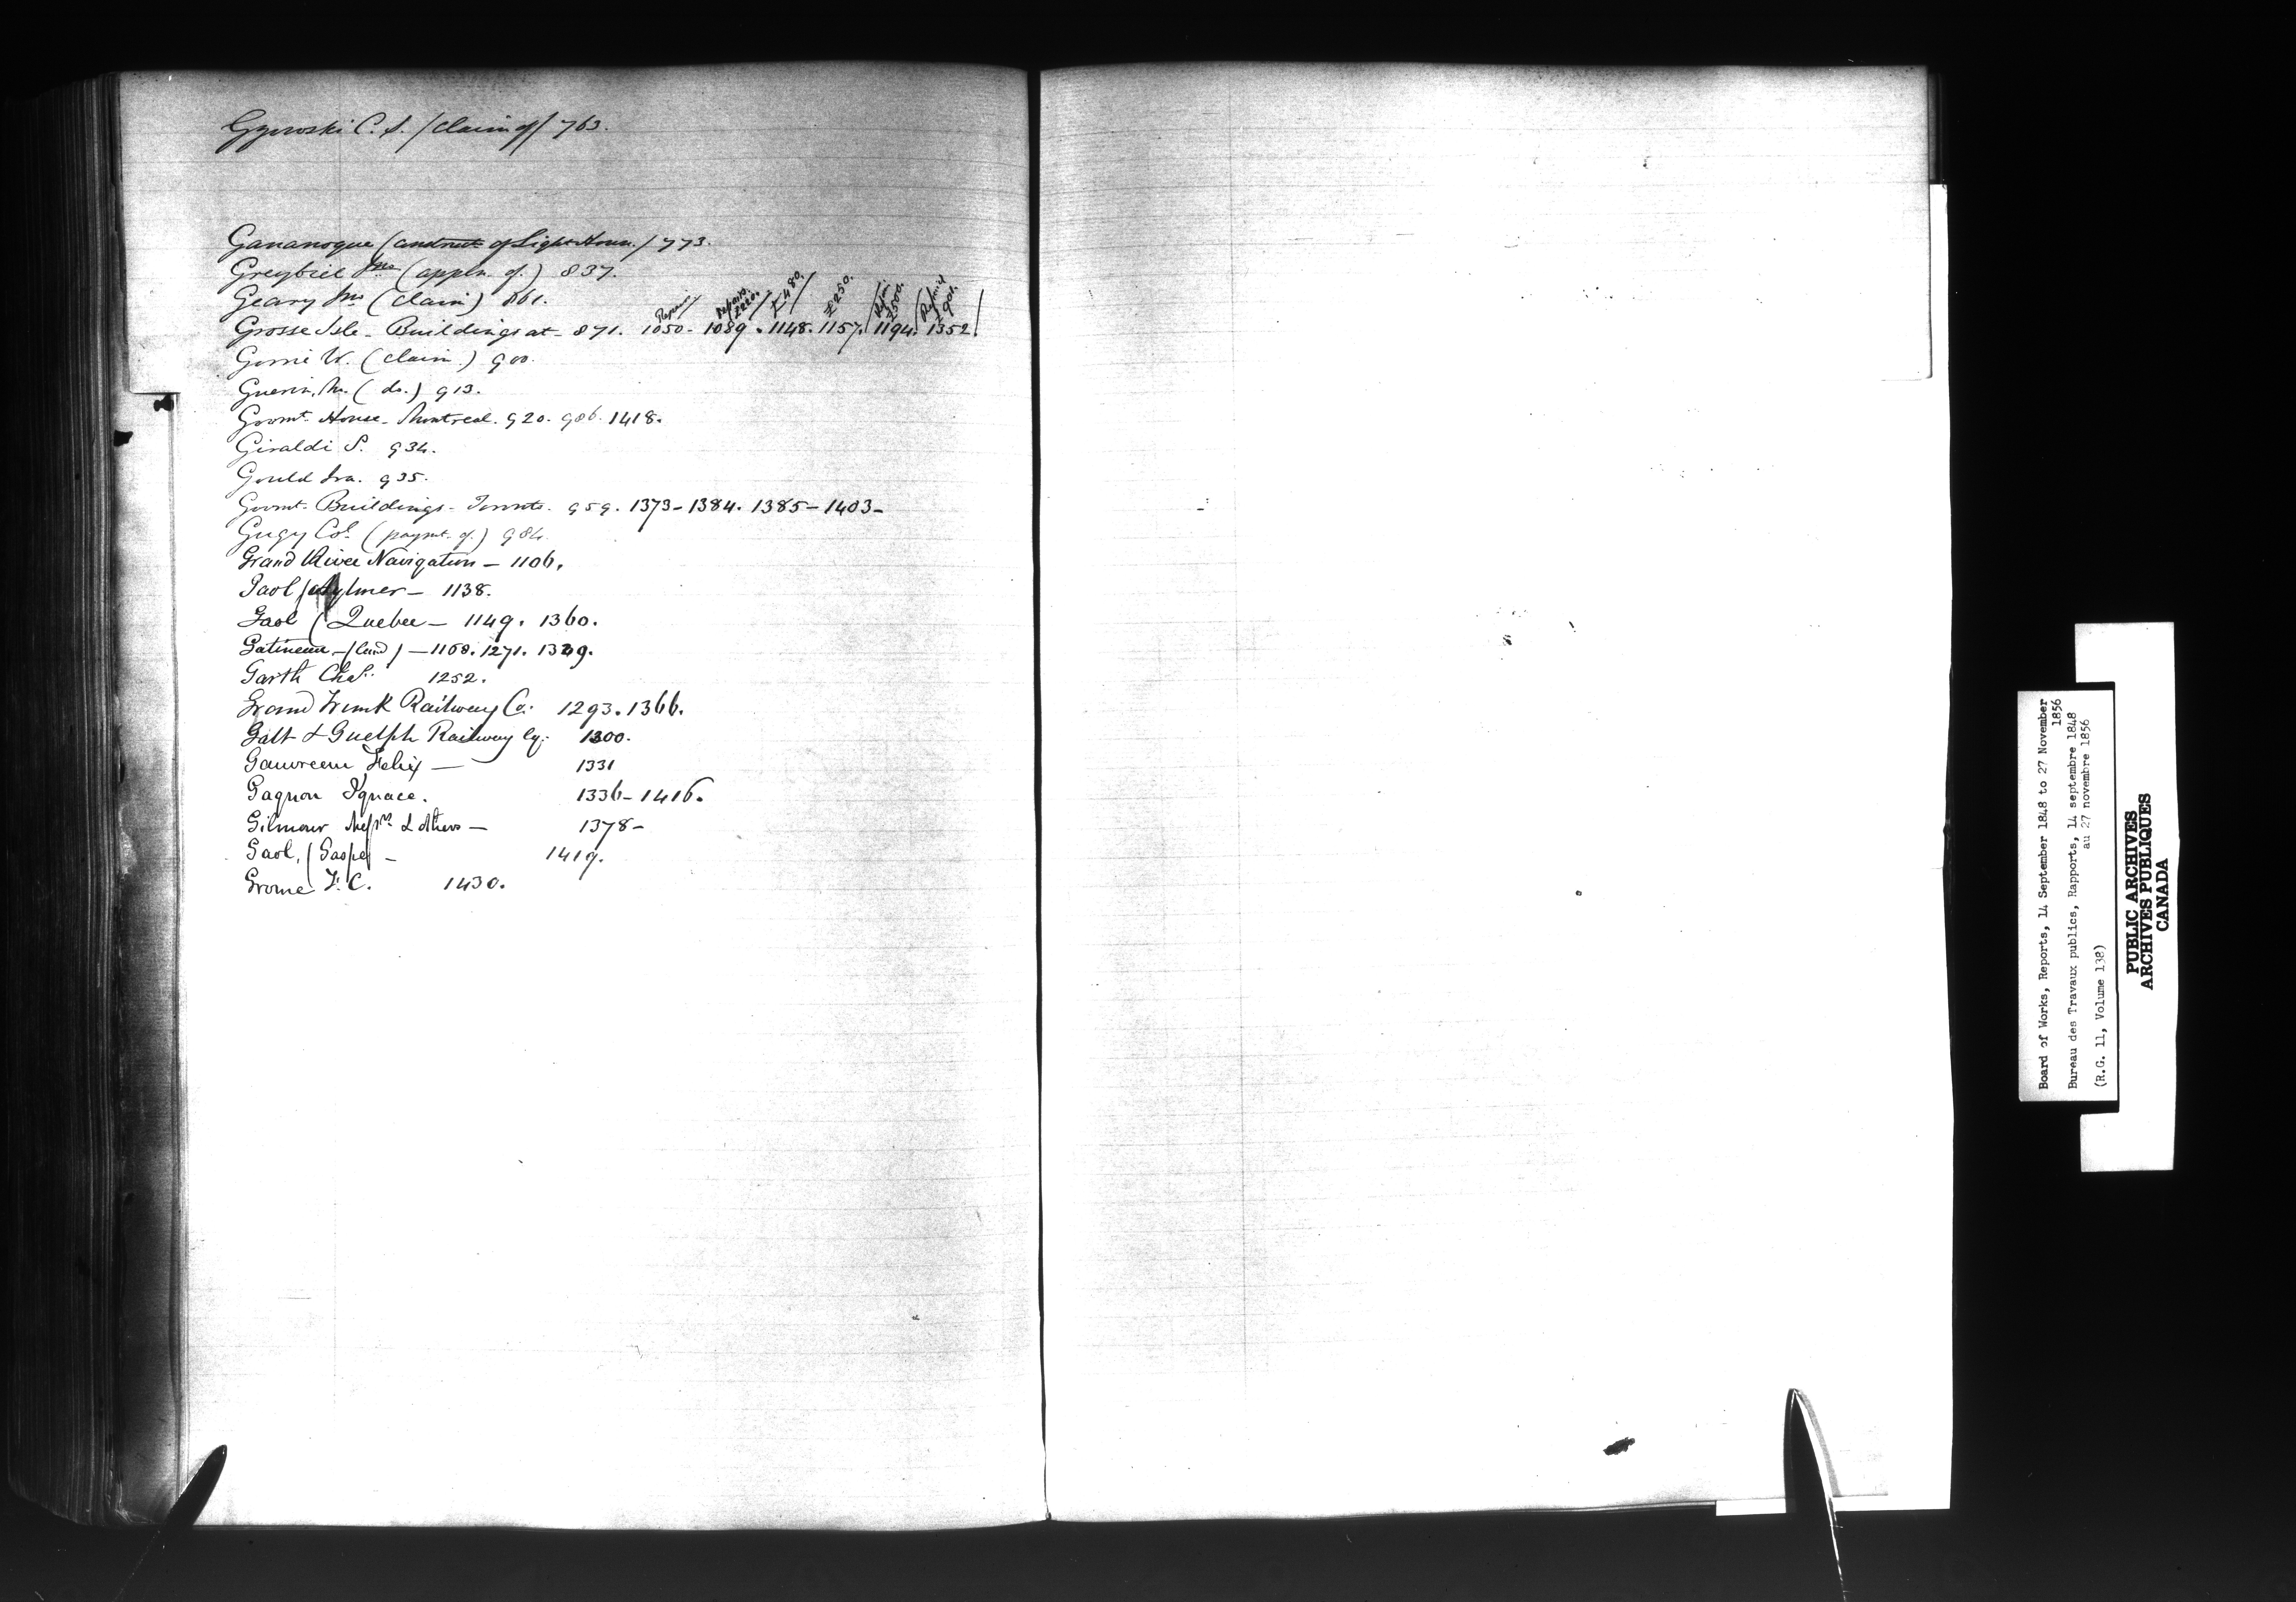 Gzowski C. S. /claim of/ 763.
Gananoque (construct of Light House./ 773.
Greybiel Jno (appln. of.) 837.
Geary Jno (claim) 861.
Repairs/ Repairs 2220./ £480./ £250. £2500. £900.
Grosse Isle - Buildings at - 871. 1050 - 1089. 1148. 1157. 1194. 1352.
Gorrie W. (claim.) 900.
Guerin, M. (do.) 913.
Govmt. House - Montreal. 920. 986. 1418.
Giraldi S. 934.
Gould Ira. 935.
Govmt. Buildings - Toronto. 959. 1373 - 1384. 1385 - 1403 -
Gugy Col. (paymt. of.) 984.
Grand River Navigation - 1106.
Gaol / Aylmer - 1138.
Gaol ( Quebec - 1149. 1360.
Gatineau - / land / - 1168. 1271. 1349.
Garth Chas. 1252.
Grand Trunk Railway Co: 1293. 1366.
Galt & Guelph Railway Cy: 1300.
Gauvreau Felix - 1331
Gagnon Ignace. 1336 - 1416.
Gilmour Messrs. & others - 1378 -
Gaol, / Gaspé - 1419.
F. C. 1430.
Board of Works, Reports, 14 September 1848 to 27 November 1856
Bureau des Travaux publics, Rapports, 14 septembre 1848 au 27 novembre 1856
(R.G. 11, Volume 138)
PUBLIC ARCHIVES
ARCHIVES PUBLIQUES
CANADA